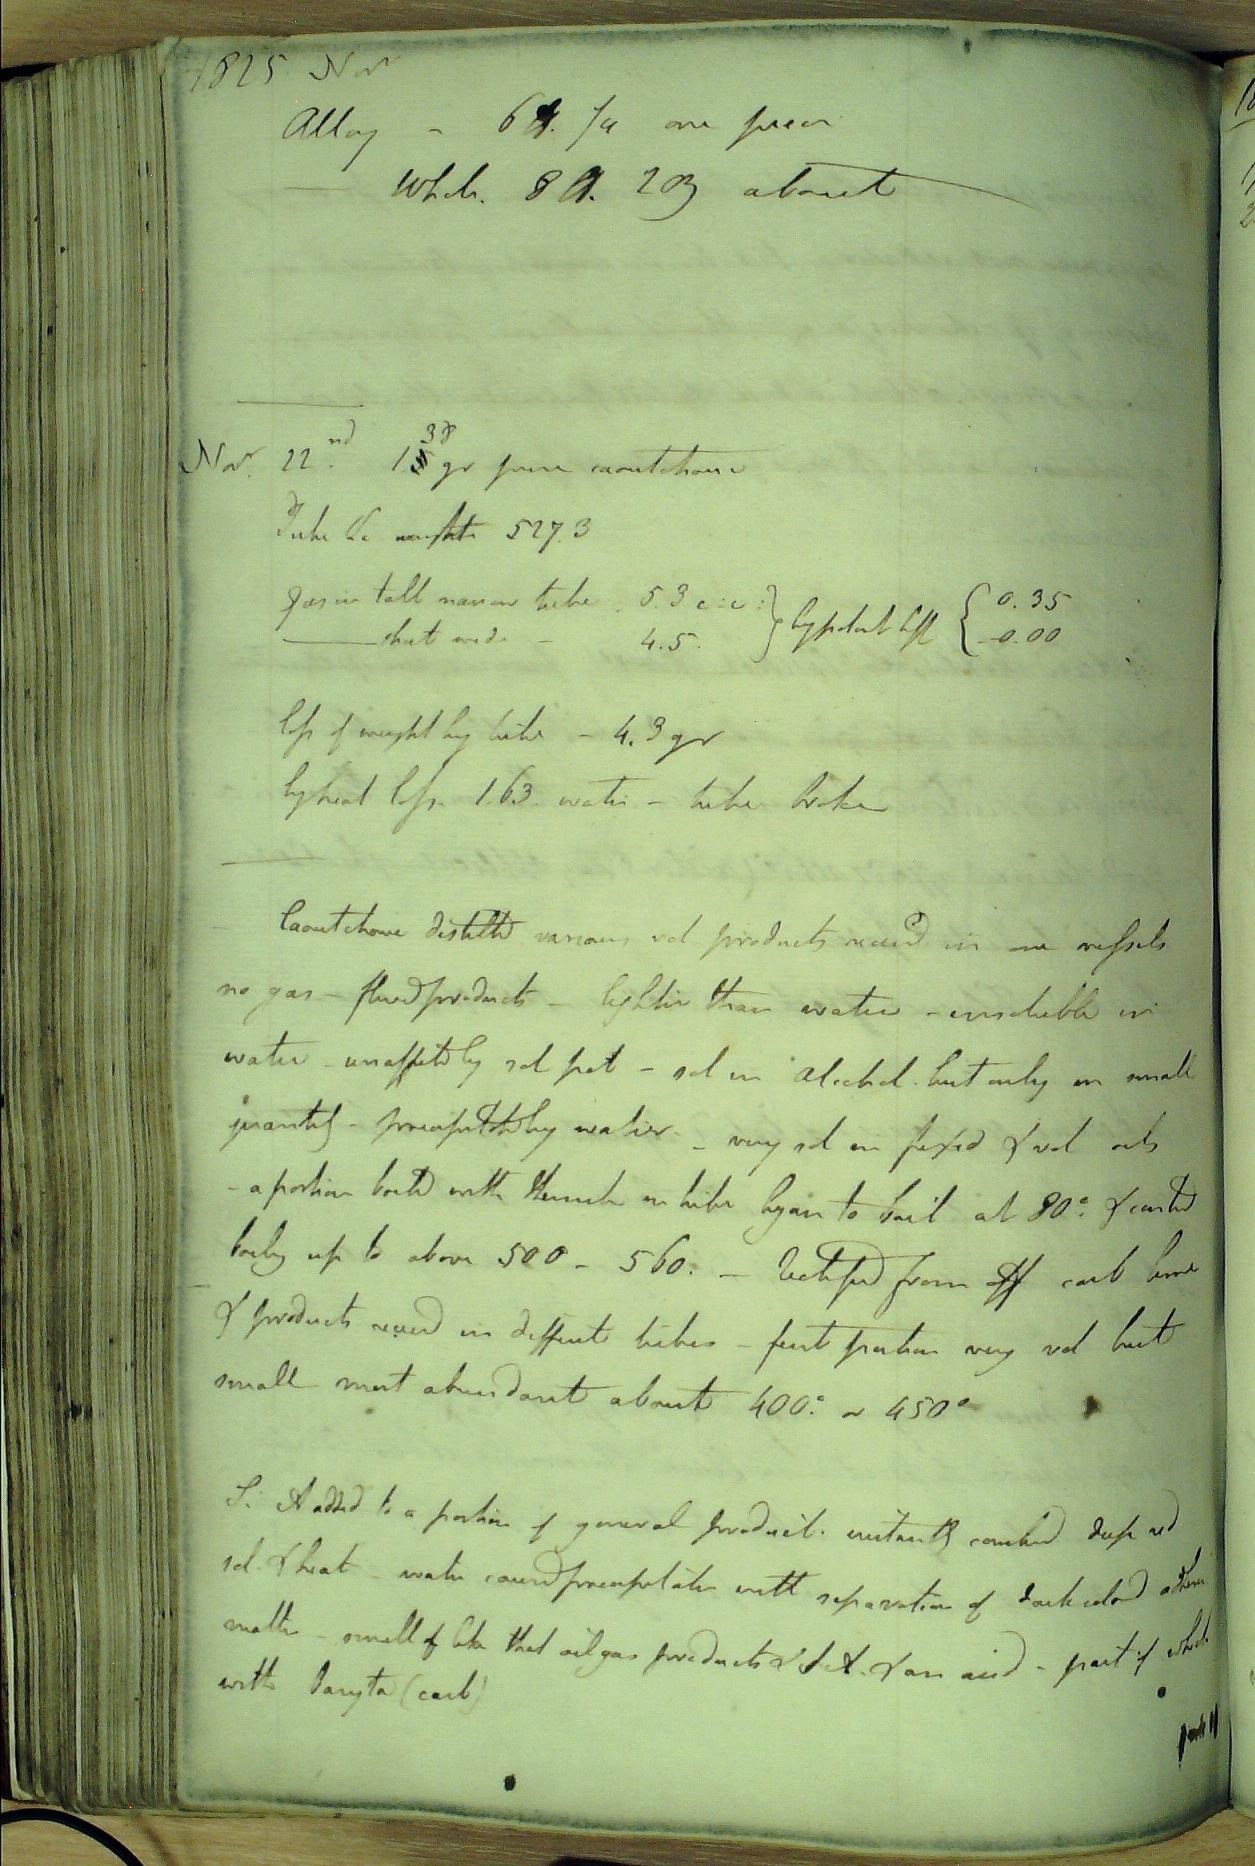 1825 Novr
Alloy - 6 lb. 1/4 one piece
Whole. 8 lb. 2 oz about
Novr 22nd. 1 38 gr pure caoutchouc
Tube &c weighs 527.3
gas in tall narrow tube. 5.3 c:i: } by potash left { 0.35
short wide - 4.5. 0.00
loss of weight by tube - 4.3 gr
by heat loss 1.63. water - tube broken
Caoutchouc distilled various vol products recd in vessels
no gas - fluid products - lighter than water - insoluble in
water - unaffected by sol pot - sol in alcohol but only in small
quantity - precipitated by water - very sol in fixed & vol oils
- a portion boild with thermr in tube began to boil at 80°. & contd
boilg up to above 500 - 560. - Rectified from off carb lime
& products recd in different tubes - first portion very vol but
small most abundant about 400°. or 450°
S. A added to a portion of general product. instantly combd deep red
sol. & heat - water caused precipitation with separation of dark cold adhesive
matter - smell of like that oil gas products & S.A. & an acid - part of which
with Baryta (carb)